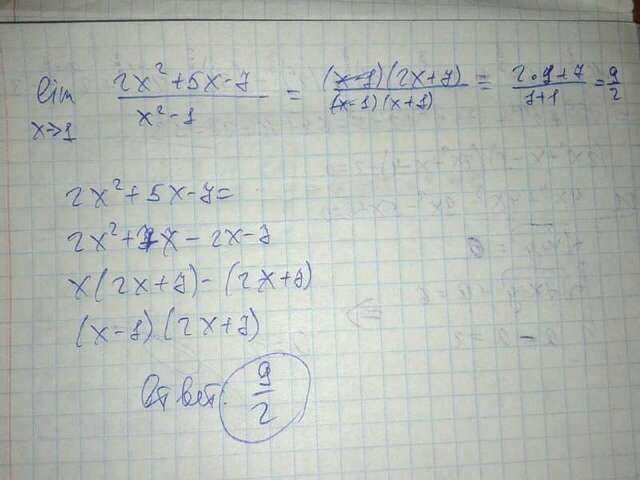 lim x→1 (2x²+5x-7)/(x²-1) = (x-1)(2x+7)/(x-1)(x+1) = (2·1+7)/(1+1) = 9/2
2x²+5x-7=
2x²+7x-2x-7
x(2x+7)-(2x+7)
(x-1)(2x+7)
Ответ: 9/2